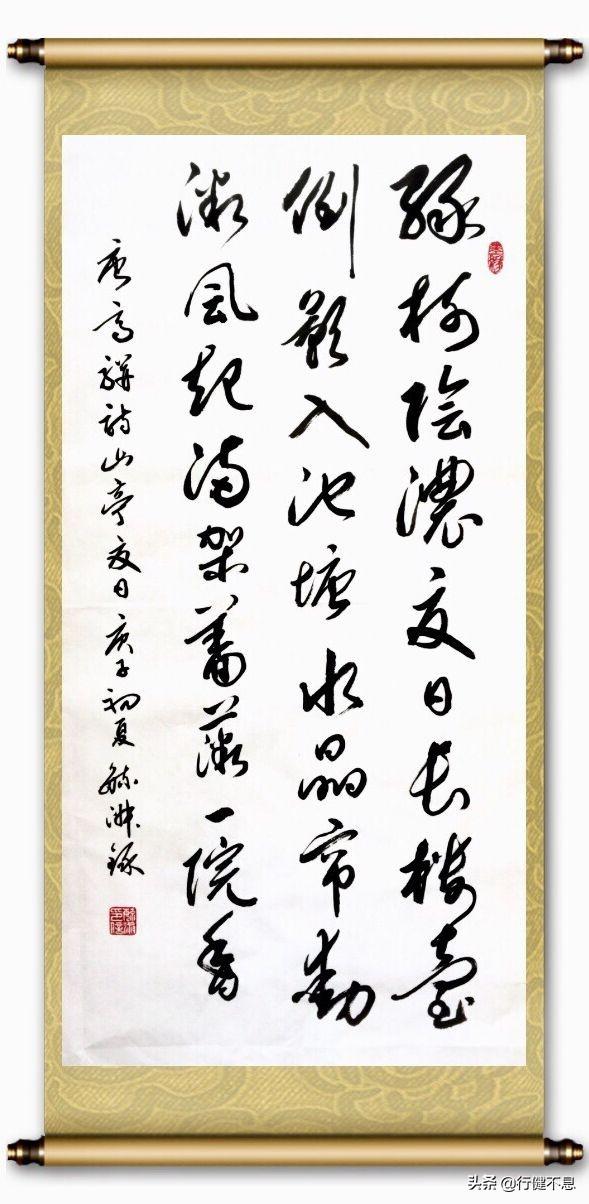 绿树陰濃夏日长楼臺
倒影入池塘水晶帘動
微風起满架蔷薇一院香
唐高骈诗山亭夏日庚子初夏毓淋録
头条 @行健不息